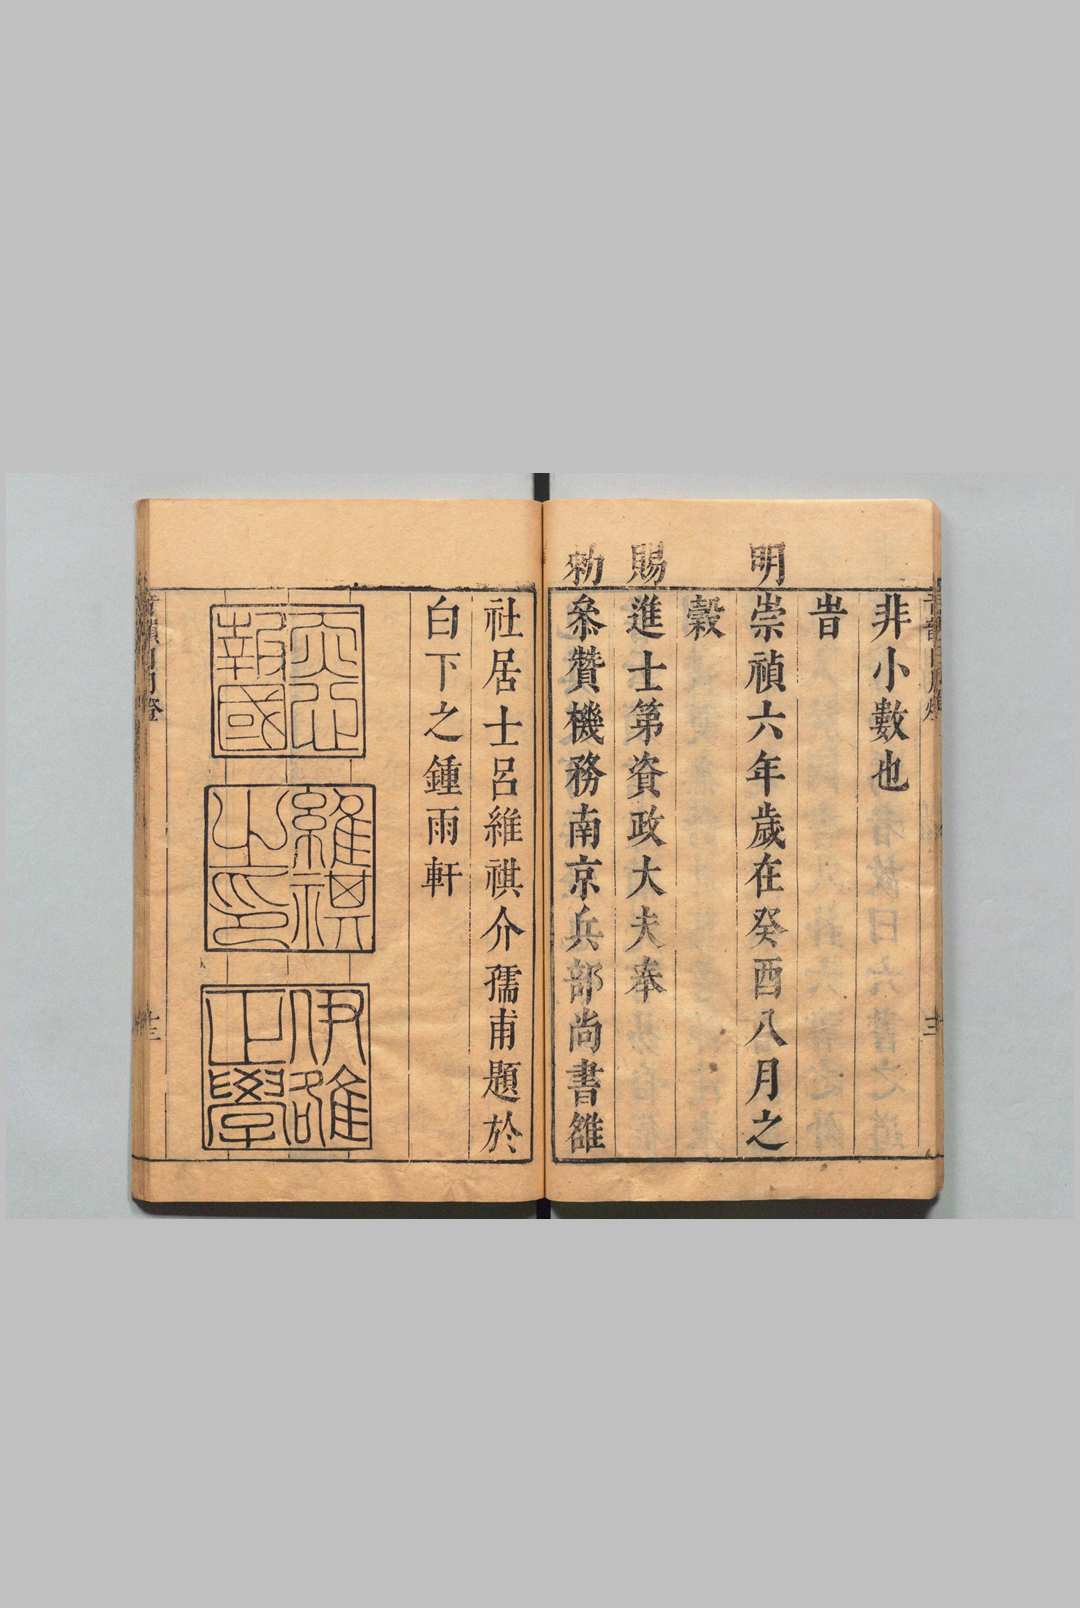 非小數也
旹
明崇禎六年歲在癸酉八月之
穀
賜進士第資政大夫奉
勑叅贊機務南京兵部尚書雒
社居士呂維祺介孺甫題於
白下之鍾雨軒
報國
維祺之印
伊雒正學
音韻日月燈
十三